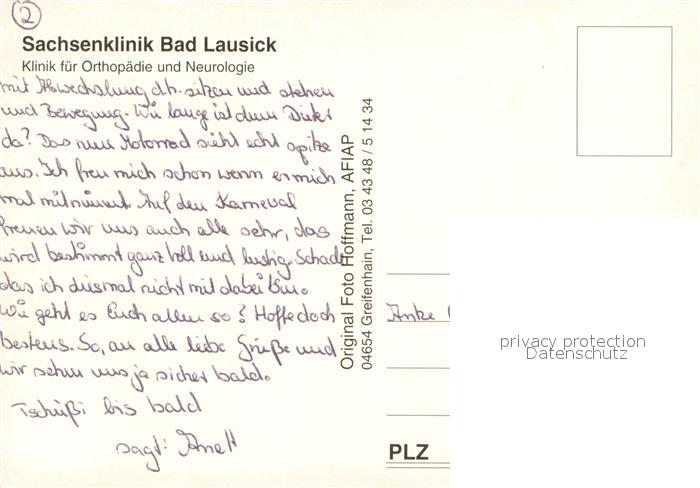 2
Sachsenklinik Bad Lausick
Klinik für Orthopädie und Neurologie
mit Abwechslung d.h. sitzen und stehen
und Bewegung. Wie lange ist denn Dieter
da? Das neue Motorrad sieht echt spitze
aus. Ich freu mich schon wenn er mich
mal mitnimmt. Auf den Karneval
freuen wir uns auch alle sehr, das
wird bestimmt ganz toll und lustig. Schade
das ich diesmal nicht mit dabei bin.
Wie geht es Euch allen so? Hoffe doch
bestens. So, an alle liebe Grüße und
wir sehen uns ja sicher bald.
Tschüßi bis bald
sagt: Anett
Original Foto Hoffmann, AFIAP
04654 Greifenhain, Tel. 03 43 48 / 5 14 34
Anke
privacy protection
Datenschutz
PLZ